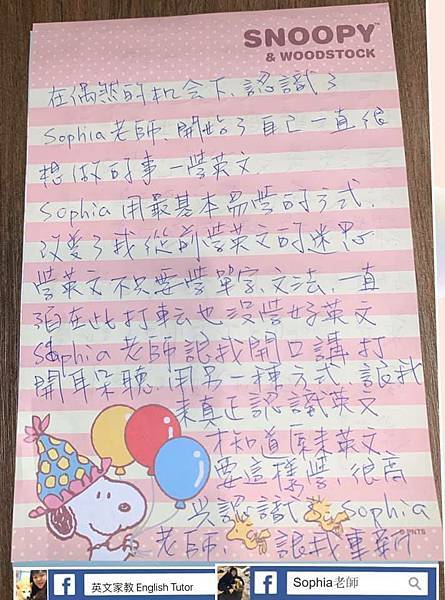 SNOOPY™
& WOODSTOCK
在偶然的机会下、認識了
Sophia老師、開始了自己一直很
想做的事一學英文.
Sophia 用最基本易學的方式.
改變了我從前學英文的迷思
學英文不只要學單字、文法、一直
在此打転也沒學好英文
Sophia 老師讓我開口講打
開耳朵聽.用另一種方式、讓我
來真正認識英文
才知道原來英文
要這樣學、很高
兴認識 Sophia
老師、讓我重新
英文家教 English Tutor
Sophia老師